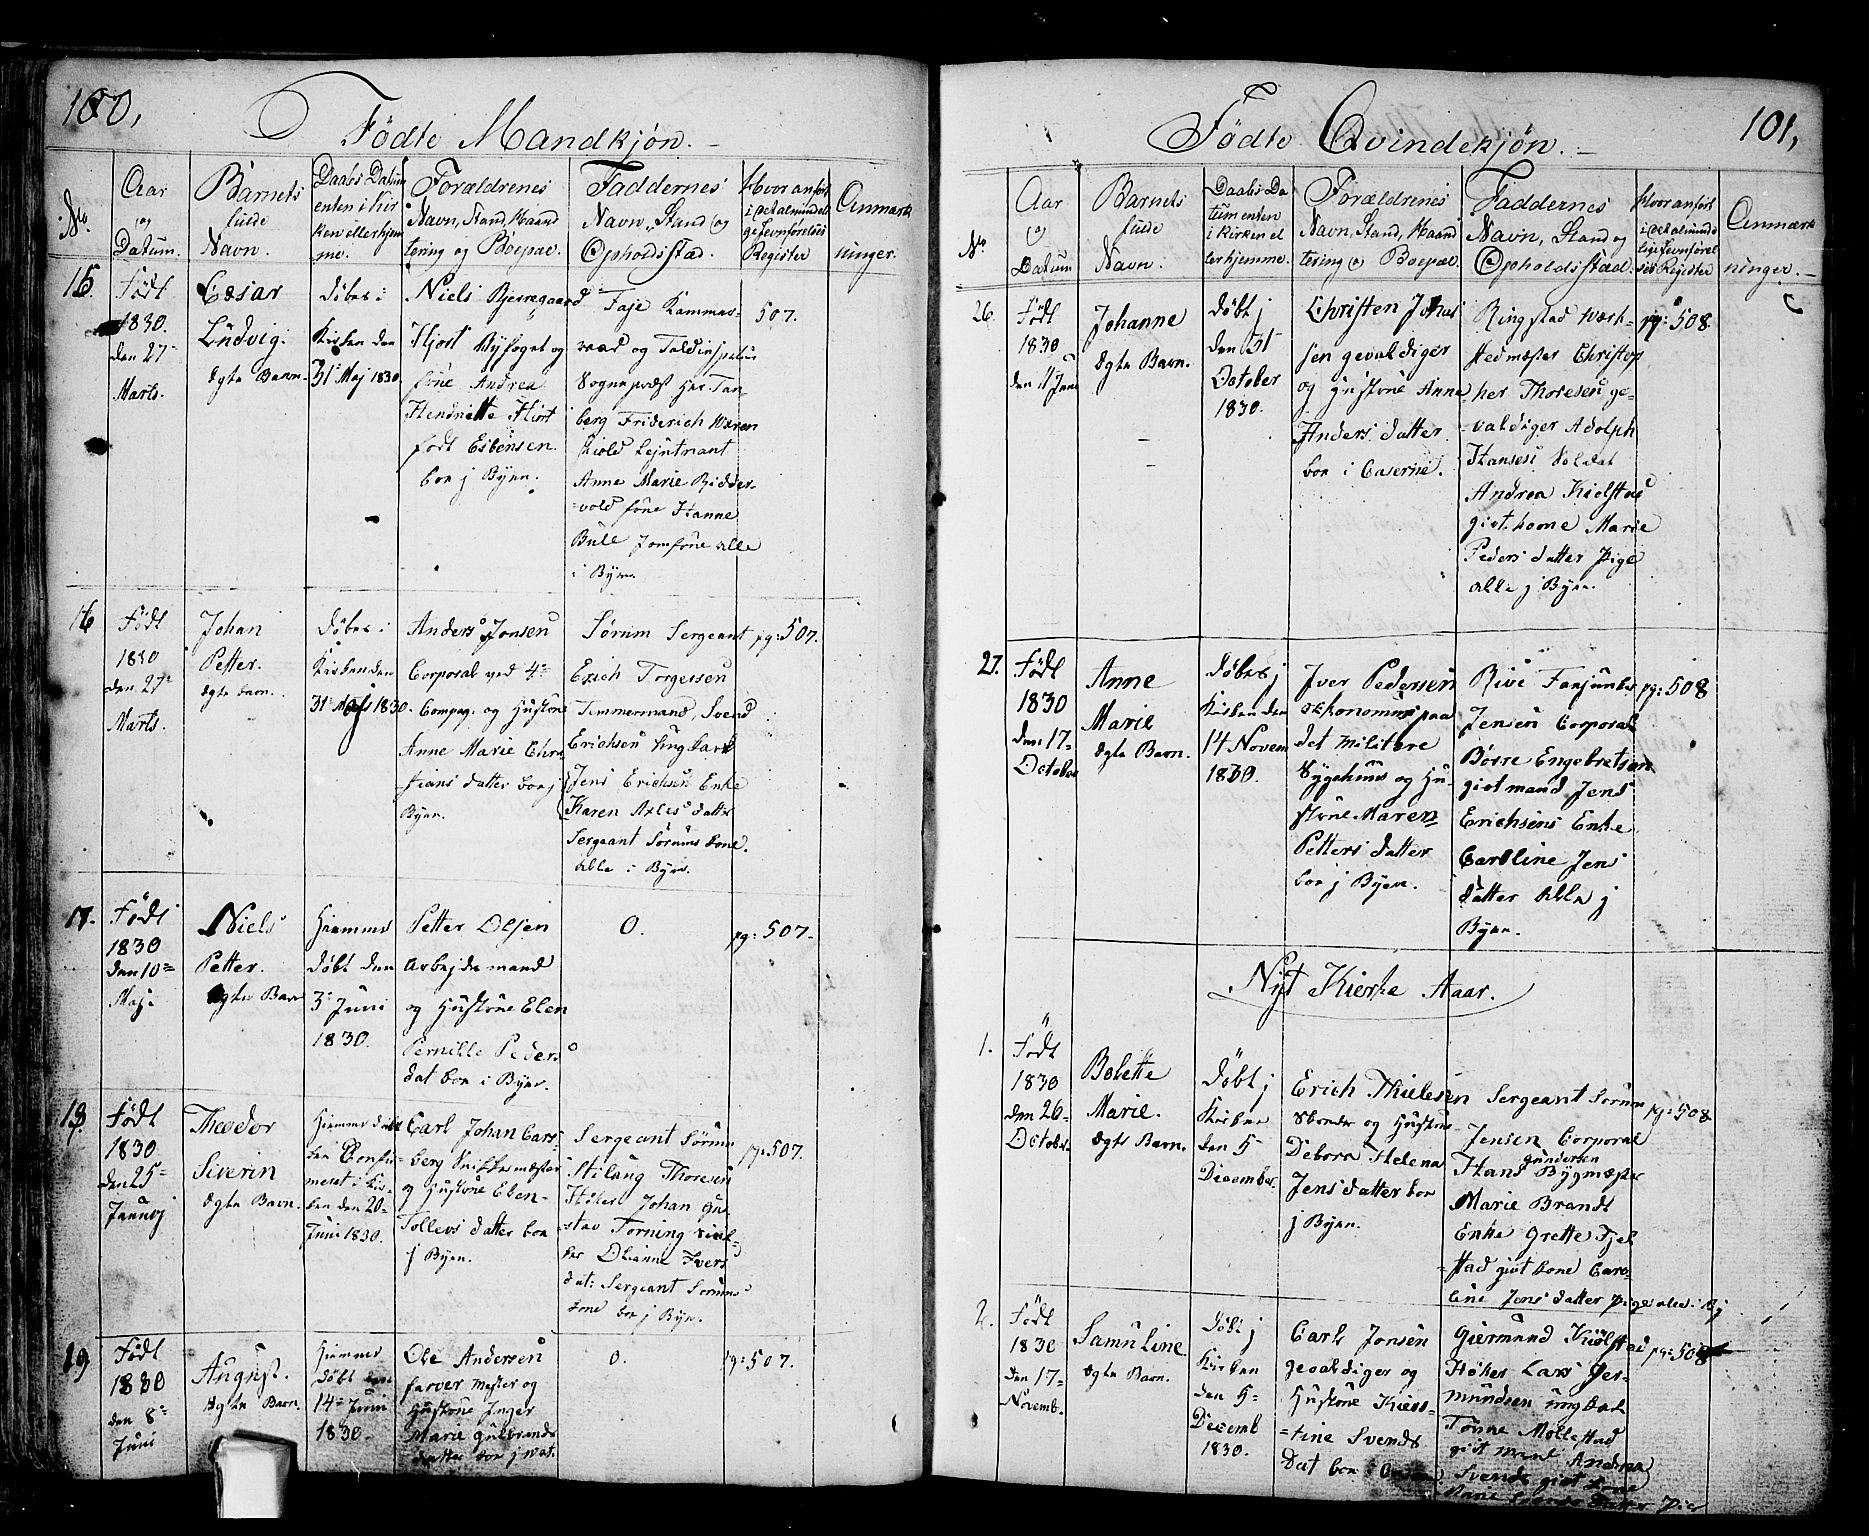 100,
Fødte Mandkjøn.
No.
Aar
og
Datum.
Barnets
fulde
Navn.
Daabs Datum
enten i kir
ken eller hjem
me.
Forældrenes
Navn, Stand, Haand
tering og Boepæl.
Faddernes
Navn, Stand og
Opholdsstæd.
Hvor anfört
i det almindeli
ge Jevnförelses
Register
Anmærk
ninger.
15.
Födt
1830.
den 27
Marts.
Cæsar
Ludvig.
ægte Barn.
döbes i
Kirken den
31 Maj 1830
Niels Bjerregaard
Hjort Byfoget og
fröe Andrea
Hendriette Hiort
født Esbensen
boe j Byen.
Faje Kammer
raad og Toldinspecteur
Sogneprest Her Tan
berg Friderich Wæren
skiold Lejutnant
Anne Marie Ridder
vold fröe Hanne
Bull Jomfrue alle
i Byen
507.
16
Födt
1830
den 27
Marts.
Johan
Petter.
ægte barn.
döbes i
Kirken den
31 Majs 1830.
Anders Jonsen
Corporal ved 4
Compag. og Hustroe
Anne Marie Chri
stians datter boe j
Byen.
Sörum Sergeant
Erich Torgersen
Timmermand, Svend
Erichsen ung karl
Jens Erichsen Enke
Karen Arles datter
Sergeant Sörums kone.
Alle i Byen.
pg: 507.
17.
Födt
1830
den 10
Maj.
Niels
Petter.
ægte Barn
Hiemme
döbt den
3 Juni
1830.
Petter Olsen
arbejdsmand
og Hustroe Elen
Pernille Peders
dat boe i Byen.
0.
pg: 507.
18.
Födt
1830.
den 25
Theodor
Siverin
ægte Barn.
Hiemme döbt
den Confir
meret i kir
ken den 20
Juni 1830.
Carl Johan Cars
berg Snikkermæster
og Hustroe Elen
Tollevs datter boe
j Byen.
Sergeant Sörum
Thoresen
Höker Johan Gu
stav Torning
ker Olianne Ivers
dat: Sergeant Sörums
kone boe j Byen.
pg: 507.
19
Födt
1830
den 8
Juni
August.
ægte Barn.
Hiemme
döbt den
14 Juni
1830.
Ole Andersen
farver mester og
Hustroe Inger
Marie Gulbrands
datter boe j
0.
pg: 507.
101,
Fødte Qvindekjön.
No
Aar
og
Datum
Barnets
fulde
Navn.
Daabs Da
tum enten
i kirken el
ler hjemme.
Forældrenes
Navn, Stand, Haand
tering og Boepæl.
Faddernes
Navn, Stand og
Opholdsstæd.
Hvor anfört
i det alminde
lige Jevnförel
ses Register
Anmærk
ninger.
26.
Födt
1830
den 11 June
Johanne
ægte Barn.
döbt j
den 31
October
1830.
Christen Johns
sen gevaldiger
og Hustroe Anne
Anders datter
boe i Caserne.
Ringstad værk
stedmester Christop
her Thoresen ge
valdiger Adolph
Hansen Soldat
Andrea Kiolstad
gift kone Marie
Peders datter Pige
alle j Byen.
pg: 508.
27.
Födt
1830
den 17
October
Anne
Marie
ægte Barn.
döbes j
Kirken den
14 Novem
1830.
Iver Pedersen
oekonomus paa
det militære
Sygehuus og Hu
stroe Maren
Petters datter
boe j Byen.
Rive Fanjunker
Jensen Corporal
Börre Engebretsen
gift mand Jens
Erichsens Enke
Caroline Jens
datter Alle j
Byen.
pg: 508
Nyt Kierke Aaar.
1.
Födt
1830
den 26
October
Bolette
Marie.
ægte Barn.
döbt j
Kirken
den 5
December.
Erich Thielesen
og Hustroe
Debora Helena
Jens datter boe
j Byen.
Sergeant Sörum
Jensen Corporal
Gundersen
Hans Bygmester
Marie Brandt
Enke Grette Fjel
stad gift kone Caro
line Jens datter pige alle i By
pg: 508
2.
Födt
1830
den 17
Novemb.
Samuline
ægte Barn.
döbt j
Kirken
den 5
Decemb
1830.
Carls Jonsen
gevaldiger og
Hustroe Kiers
tine Svends
Dat boe
Giermund Kiölstad
Höker Lars Ger
mundsen ung karl
Tönne Mollestad
gift mand Andrea
Svends gift kone
Marie
pg: 508